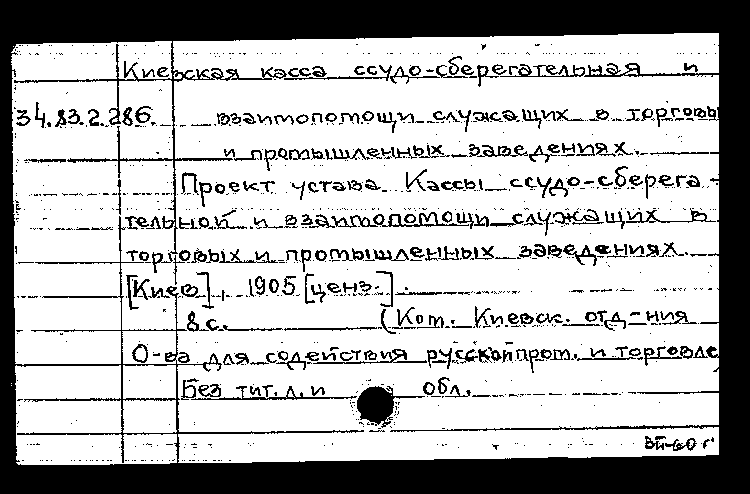 Киевская касса ссудо-сберегательная и
34.83.2.286. взаимопомощи служащих в торговы
и промышленных заведениях.
Проект устава Кассы ссудо-сберега-
тельной и взаимопомощи служащих в
торговых и промышленных заведениях.
[Киев], 1905 [ценз.].
8 с. (Ком. Киевск. отд-ния
О-ва для содействия русской пром. и торговле
Без тит. л. и обл.